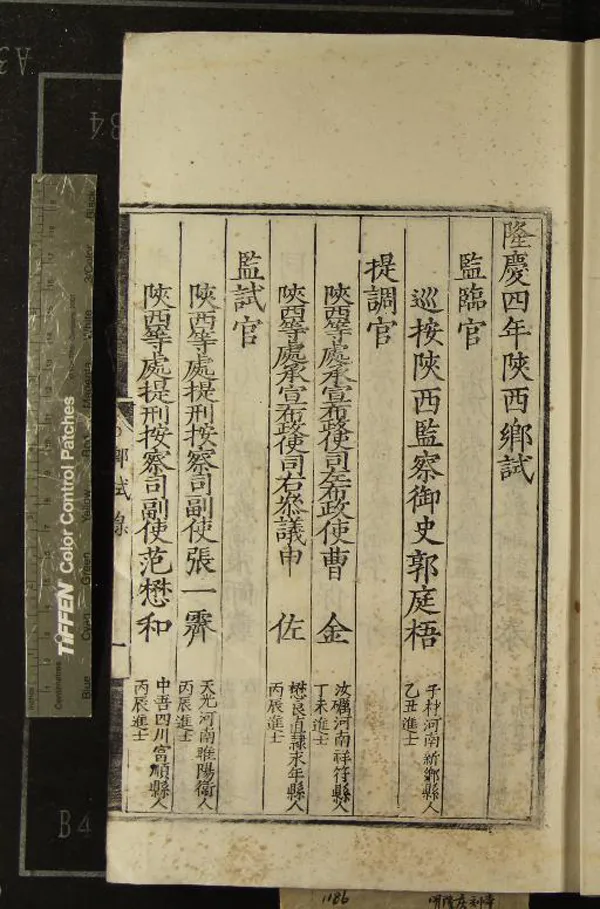 隆慶四年陜西鄉試
監臨官
巡按陜西監察御史郭庭梧
子材河南新鄉縣人
乙丑進士
提調官
陜西等處承宣布政使司左布政使曹 金
汝礪河南祥符縣人
丁未進士
陜西等處承宣布政使司右叅議申 佐
懋良直隷永年縣人
丙辰進士
監試官
陜西等處提刑按察司副使張一霽
天光河南睢陽衛人
丙辰進士
陜西等處提刑按察司副使范懋和
中吾四川富順縣人
丙辰進士
鄉試錄
一
TIFFEN Color Control Patches
Inches
Centimetres
Blue
Cyan
Green
Yellow
Red
Magenta
White
3/Color
Black
B4
B4
A3
1186
明隆慶刻本